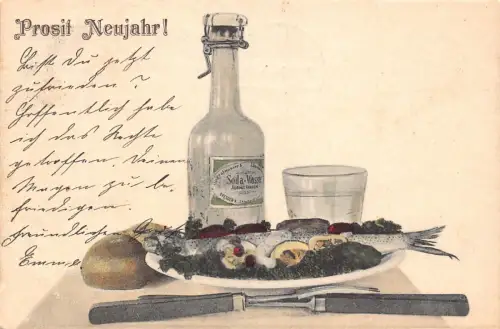 Prosit Neujahr!
Bist du jetzt
zufrieden?
Hoffentlich habe
ich das Rechte
getroffen. Deinen
Magen zu be-
friedigen.
freundlichen
Emma
Soda-Wasser